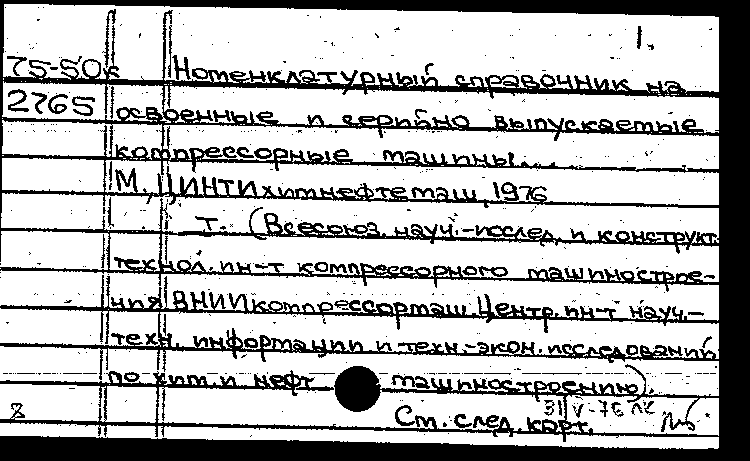 1.
75-50к Номенклатурный справочник на
2765 освоенные и серийно выпускаемые
компрессорные машины...
М., ЦИНТИхимнефтемаш, 1976
т. (Всесоюз. науч.-исслед. и конструкт.
технол. ин-т компрессорного машинострое-
ния ВНИИкомпрессормаш. Центр. ин-т науч.-
техн. информации и техн.-экон. исследований
по хим. и нефт машиностроению).
31/V-76 ЛК
8 См. след. карт.